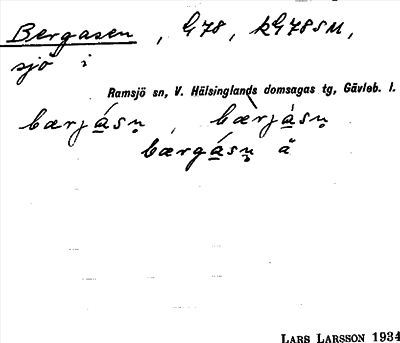 Bergasen, G78, kG78SM,
sjö i
Ramsjö sn, V. Hälsinglands domsagas tg, Gävleb. l.
bærjásṇ, bærjàsṇ
bærgásṇ å
LARS LARSSON 1934